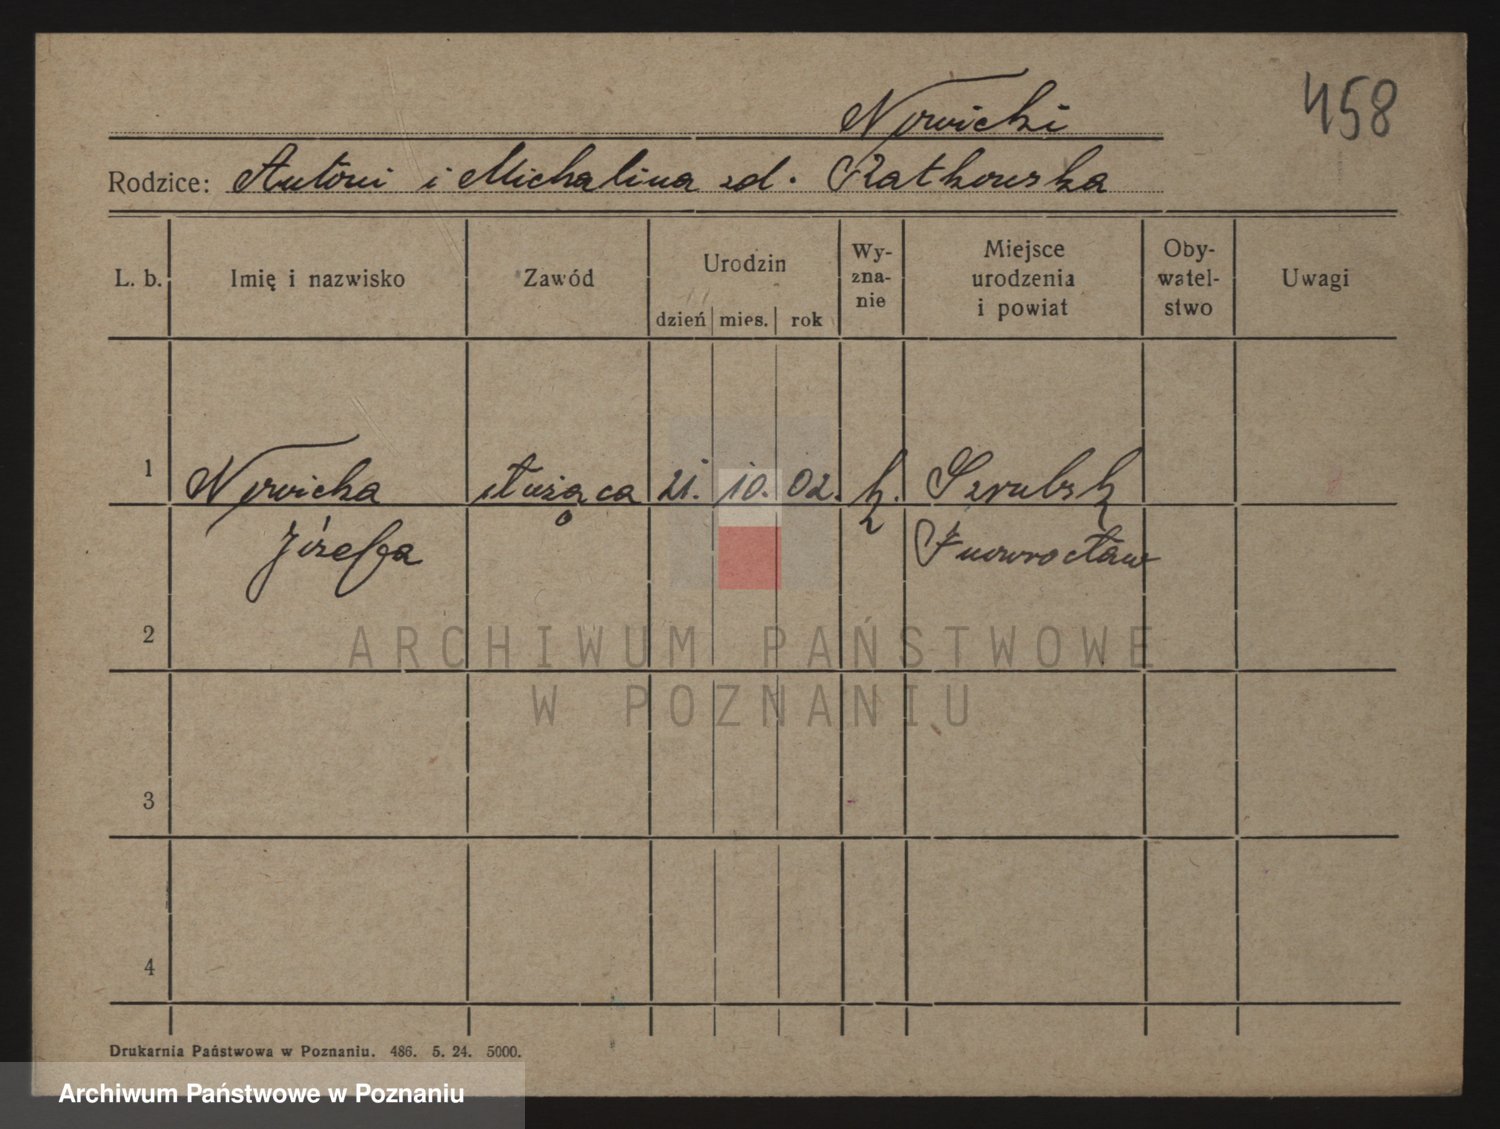 458
Nowicki
Rodzice: Antoni i Michalina zd. Ratkowska
L. b. Imię i nazwisko Zawód Urodzin dzień mies. rok Wy-zna-nie Miejsce urodzenia i powiat Oby-watel-stwo Uwagi
1 Nowicka służąca 21. 10. 02. k. Szrubsk
Józefa Inowrocław
2
3
4
ARCHIWUM PAŃSTWOWE
W POZNANIU
Drukarnia Państwowa w Poznaniu. 486. 5. 24. 5000.
Archiwum Państwowe w Poznaniu